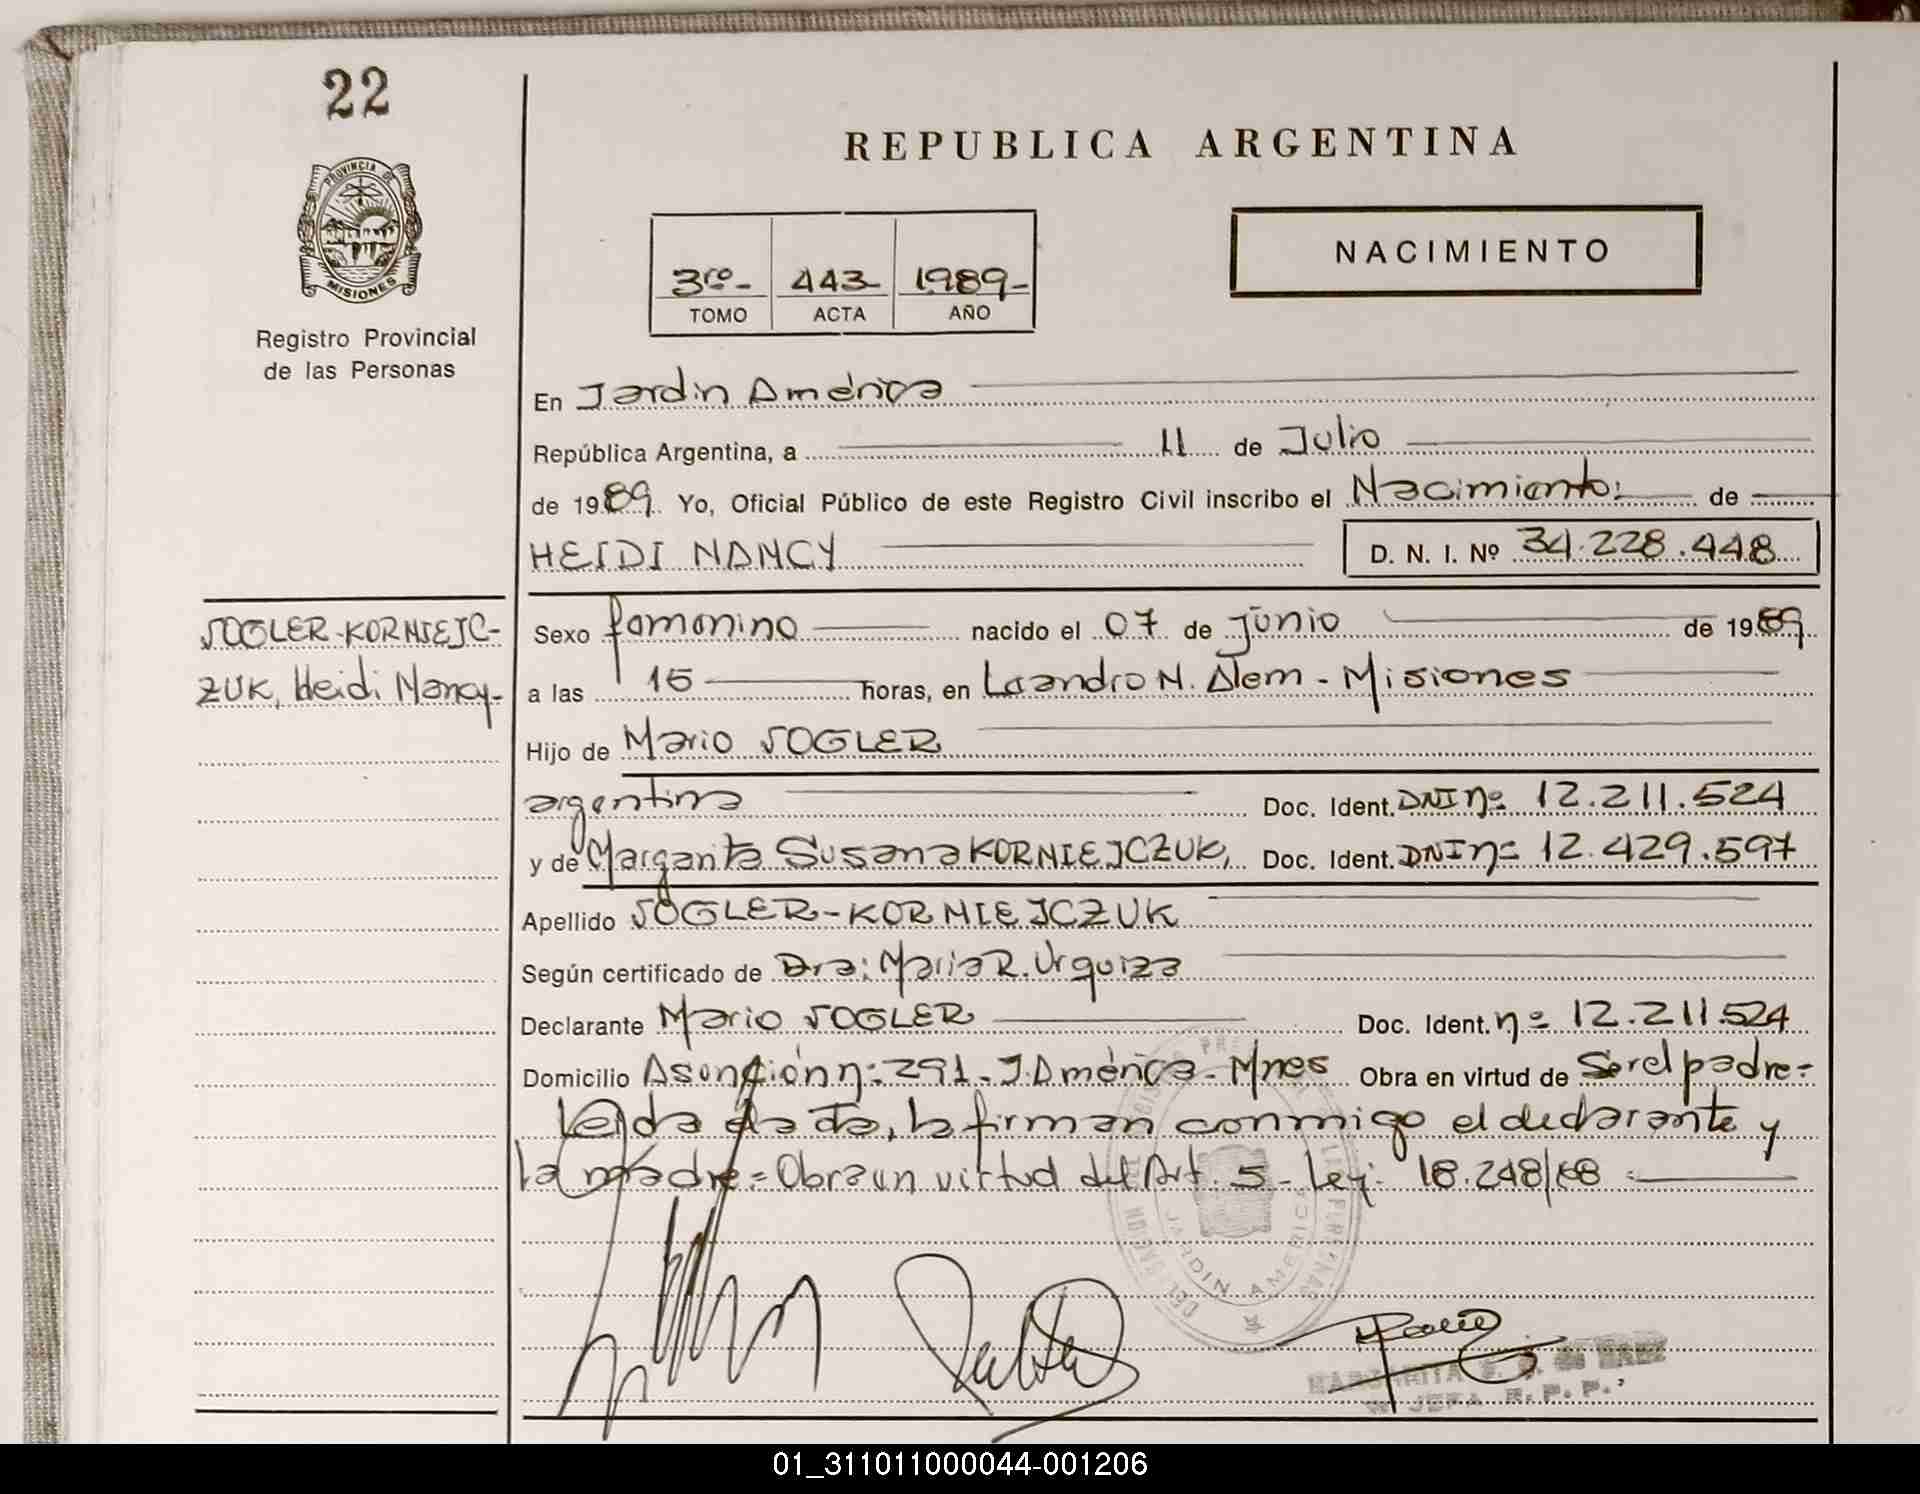 22
REPUBLICA ARGENTINA
PROVINCIA DE
MISIONES
Registro Provincial
de las Personas
NACIMIENTO
3ro- 443- 1989-
TOMO ACTA AÑO
En Jardin América
República Argentina, a 11 de Julio
de 1989. Yo, Oficial Público de este Registro Civil inscribo el Nacimiento: de
HEIDI NANCY D. N. I. Nº 34.228.448
SOGLER-KORNIEJC-
ZUK, Heidi Nancy-
Sexo femenino nacido el 07 de junio de 1989
a las 15 horas, en Leandro N. Alem - Misiones
Hijo de Mario SOGLER
argentina Doc. Ident. DNI nº 12.211.524
y de Margarita Susana KORNIEJCZUK, Doc. Ident. DNI nº 12.429.597
Apellido SOGLER-KORNIEJCZUK
Según certificado de Dra: Maria R. Urquiza
Declarante Mario SOGLER Doc. Ident. nº 12.211.524
Domicilio Asunción n: 291 - J. América - Mnes Obra en virtud de Ser el padre=
Leida el acta, la firman conmigo el declarante y
la madre= Obra en virtud del Art. 5 - Ley: 18.248/68
JARDIN AMERICA
MARGARITA
JEFA R. P. P.
01_311011000044-001206